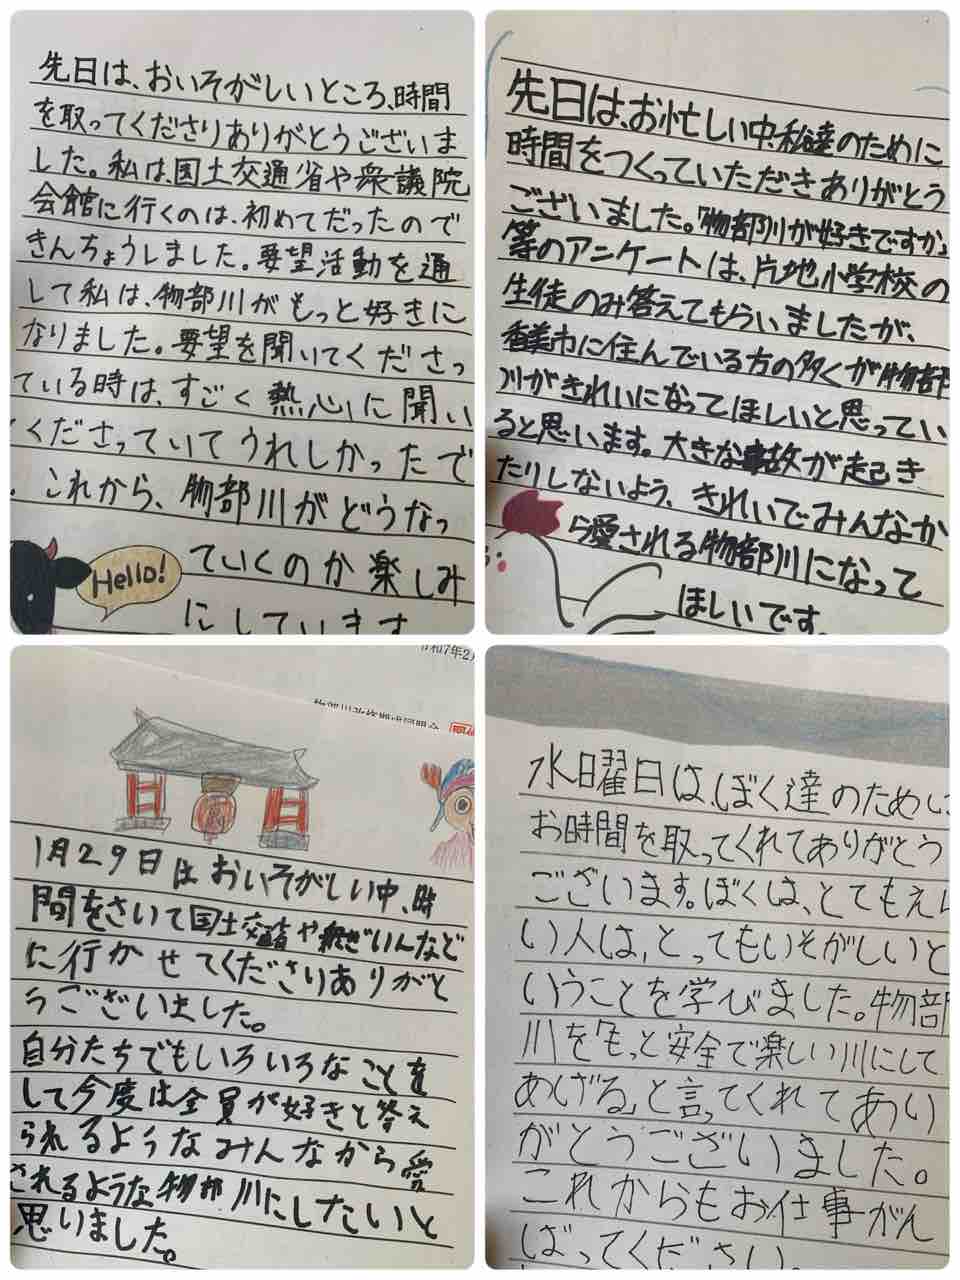 先日は、おいそがしいところ、時間
を取ってくださりありがとうございま
した。私は、国土交通省や衆議院
会館に行くのは、初めてだったので
きんちょうしました。要望活動を通
して私は、物部川がもっと好きに
なりました。要望を聞いてくださっ
ている時は、すごく熱心に聞い
くださっていてうれしかったで
。これから、物部川がどうなっ
ていくのか楽しみ
にしています
Hello!
先日は、お忙しい中、私達のために
時間をつくっていただきありがとう
ございました。「物部川が好きですか」
等のアンケートは、片地小学校の
生徒のみ答えてもらいましたが、
香美市に住んでいる方の多くが物部
川がきれいになってほしいと思ってい
ると思います。大きな事故が起き
たりしないよう、きれいでみんなか
ら愛される物部川になって
ほしいです。
令和7年2月
1月29日はおいそがしい中、時
間をさいて国土交通省や衆ぎいんなど
に行かせてくださりありがと
うございました。
自分たちでもいろいろなことを
して今度は全員が好きと答え
られるようなみんなから愛
されるような物部川にしたいと
思いました。
水曜日は、ぼく達のために
お時間を取ってくれてありがとう
ございます。ぼくは、とてもえら
い人は、とってもいそがしいと
いうことを学びました。物部
川を「もっと安全で楽しい川にして
あげる」と言ってくれてあり
がとうございました。
これからもお仕事がん
ばってください。